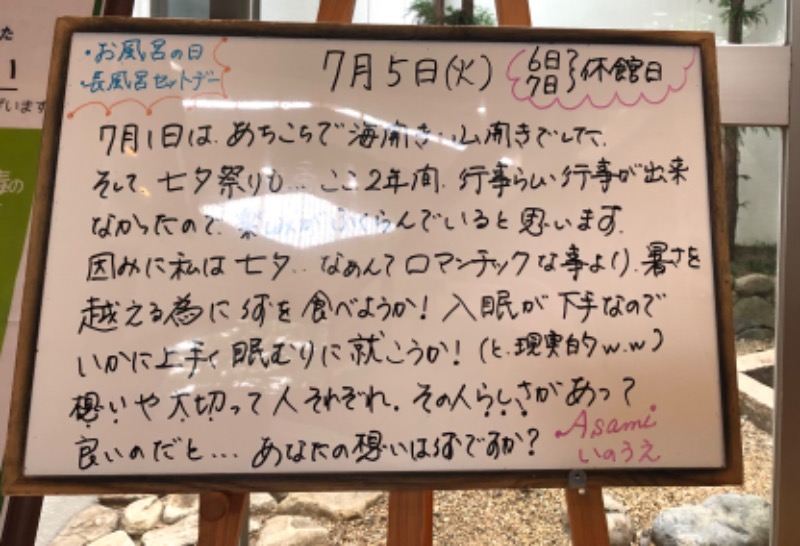 ・お風呂の日
・長風呂セットデー
7月5日(火)
6日
7日
休館日
7月1日は、あちこちで海開き・山開きでした。
そして、七夕祭りも…ここ2年間、行事らしい行事が出来
なかったので、楽しみがふくらんでいると思います。
因みに私は七夕…なぁんてロマンチックな事より、暑さを
越える為に何を食べようか!入眠が下手なので
いかに上手く眠むりに就こうか!(と、現実的w.w)
想いや大切って人それぞれ。その人らしさがあって
良いのだと…あなたの想いは何ですか?
Asami
いのうえ